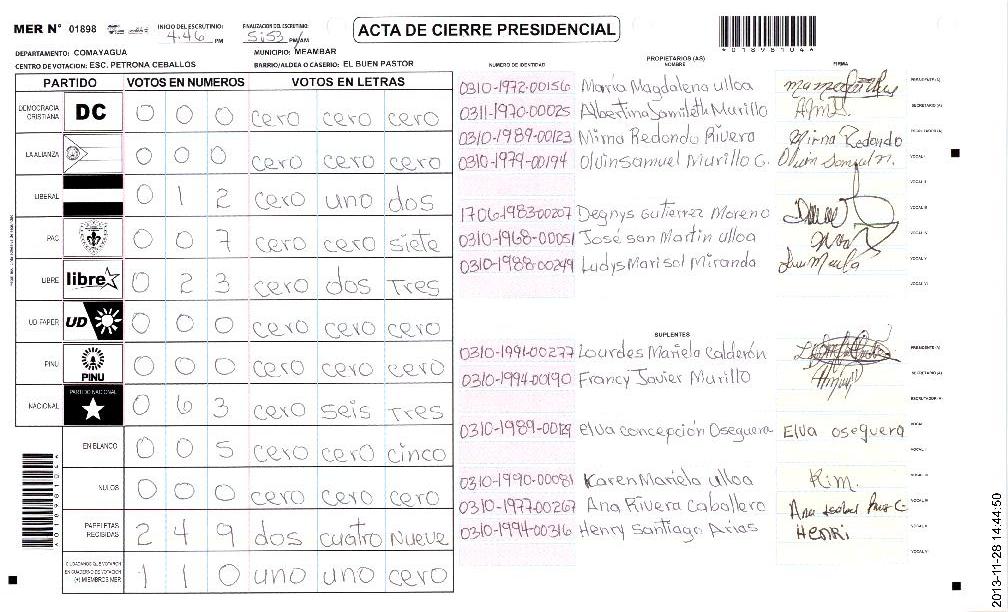 MER N° 01898 INICIO DEL ESCRUTINIO: 4:46 PM FINALIZACION DEL ESCRUTINIO: 5:53 PM/AM
ACTA DE CIERRE PRESIDENCIAL
DEPARTAMENTO: COMAYAGUA MUNICIPIO: MEAMBAR
CENTRO DE VOTACION: ESC. PETRONA CEBALLOS BARRIO/ALDEA O CASERIO: EL BUEN PASTOR
PARTIDO VOTOS EN NUMEROS VOTOS EN LETRAS
DEMOCRACIA CRISTIANA DC 0 0 0 cero cero cero
LA ALIANZA 0 0 0 cero cero cero
LIBERAL 0 1 2 cero uno dos
PAC 0 0 7 cero cero siete
LIBRE libre 0 2 3 cero dos Tres
UD FAPER UD 0 0 0 cero cero cero
PINU PINU 0 0 0 cero cero cero
NACIONAL PARTIDO NACIONAL 0 6 3 cero seis Tres
EN BLANCO 0 0 5 cero cero cinco
NULOS 0 0 0 cero cero cero
PAPELETAS RECIBIDAS 2 4 9 dos cuatro Nueve
CIUDADANOS QUE VOTARON EN CUADERNO DE VOTACION (+) MIEMBROS MER 1 1 0 uno uno cero
PROPIETARIOS (AS)
NUMERO DE IDENTIDAD NOMBRE FIRMA
0310-1972-00156 Maria Magdalena ulloa PRESIDENTE (A)
0311-1970-00025 Albertina Jamileth Murillo SECRETARIO (A)
0310-1989-00123 Mirna Redondo Rivera Mirna Redondo ESCRUTADOR (A)
0310-1979-00194 Olvin samuel Murillo C. VOCAL I
VOCAL II
1706-1983-00207 Degnys Gutierrez Moreno VOCAL III
0310-1968-00051 José san Martin ulloa VOCAL IV
0310-1988-00249 Ludys Marisol Miranda VOCAL V
VOCAL VI
SUPLENTES
0310-1991-00277 Lourdes Mariela Calderón PRESIDENTE (A)
0310-1994-00190 Francy Javier Murillo SECRETARIO (A)
ESCRUTADOR (A)
0310-1989-00129 elva concepción Oseguera Elva oseguera VOCAL I
VOCAL II
0310-1990-00081 Karen Mariela ulloa VOCAL III
0310-1977-00267 Ana Rivera Caballero VOCAL IV
0310-1994-00316 Henry Santiago Arias Henri VOCAL V
VOCAL VI
2013-11-28 14:44:50